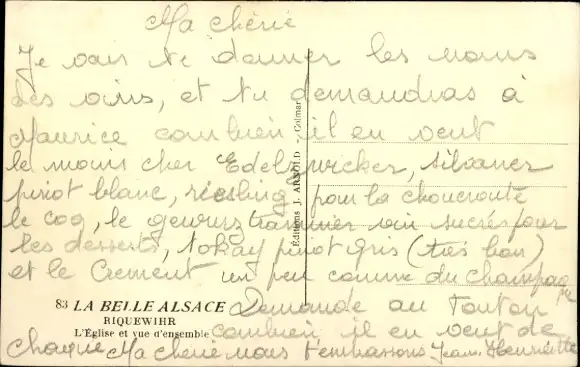 Ma chérie
Je vais te donner les noms
des vins, et tu demandras à
Maurice combien il en veut
le moins cher Edelswicker, silvaner
pinot blanc, riesling pour la choucroute
le coq, le gewurztraminer vin sucrés pour
les desserts, tokay pinot gris (très bon)
et le Crement un peu comme du champagne
Demande au Tonton
combien il en veut de
chaque Ma chérie nous t'embrassons Jean, Henriette
83 LA BELLE ALSACE
RIQUEWIHR
L'Église et vue d'ensemble
Éditions J. ARNOLD - Colmar